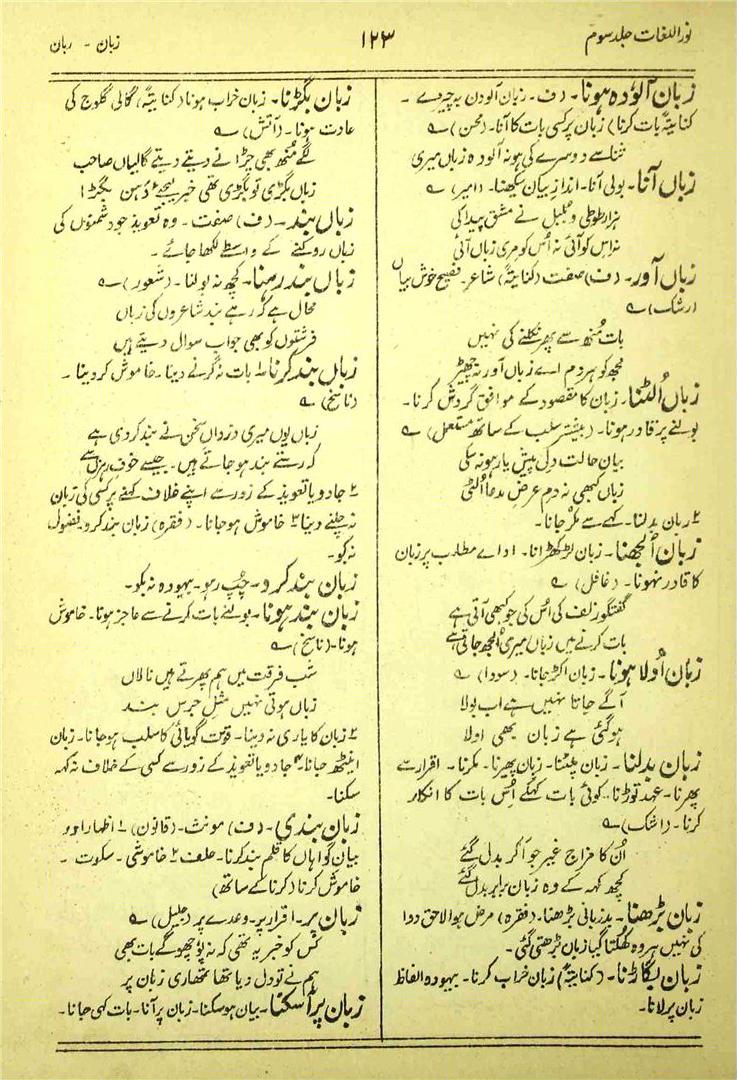 نور اللغات جلد سوم
۱۲۳
زبان - زبان
زبان آلودہ ہونا۔ (ف۔ زبان آلودن بہ چیزے ۔
کنایتہً بات کرنا) زبان پر کسی بات کا آنا۔ (محسن) ؎
ثنا سے دوسرے کی ہو نہ آلودہ زباں میری
زباں آنا۔ بولی آنا۔ انداز بیان سیکھنا۔ (امیر) ؎
ہزار طوطی و بلبل نے مشق پیدا کی
نہ اس کو آئی نہ اُس کو مری زباں آئی
زباں آور۔ (ف) صفت (کنایتہً) شاعر۔ فصیح خوش بیاں
(رشک) ؎
بات مُنھ سے پھر نکلنے کی نہیں
مجھ کو ہر دم اے زباں آور نہ چھیڑ
زباں اُلٹنا۔ زبان کا مقصود کے موافق گردش کرنا۔
بولنے پر قادر ہونا۔ (بیشتر سلب کے ساتھ مستعمل) ؎
بیان حالت دل پیش یار ہو نہ سکی
زباں کبھی نہ دم عرض مدعا اُلٹی
۲ زبان بدلنا۔ کہے سے مکر جانا۔
زبان اُلجھنا۔ زبان لڑکھڑانا۔ ادائے مطلب پر زبان
کا قادر نہونا۔ (غافل) ؎
گفتگو زلف کی اُس کی جو کبھی آتی ہے
بات کرنے میں زباں میری اُلجھ جاتی ہے
زبان اَولا ہونا۔ زبان اکڑ جانا۔ (سودا) ؎
آگے جاتا نہیں ہے اب بولا
ہو گئی ہے زبان بھی اولا
زبان بدلنا۔ زبان پلٹنا۔ زبان پھیرنا۔ مکرنا۔ اقرار سے
پھرنا۔ عہد توڑنا۔ کوئی بات کہکے اُس بات کا انکار
کرنا۔ (اشک) ؎
اُن کا مزاج غیر جو آکر بدل گئے
کچھ کہہ کے وہ زبان برابر بدل گئے
زبان بڑھنا۔ بدزبانی بڑھنا۔ (فقرہ) مرض ہوا لاحق دوا
کی نہیں ہر وہ گھٹتا گیا زبان بڑھتی گئی۔
زبان بگاڑنا۔ (کنایتہً) زبان خراب کرنا۔ بیہودہ الفاظ
زبان پر لانا۔
زبان بگڑنا۔ زبان خراب ہونا (کنایتہً) گالی گلوج کی
عادت ہونا۔ (آتش) ؎
لگے مُنھ بھی چڑانے دیتے دیتے گالیاں صاحب
زباں بگڑی تو بگڑی تھی خبر لیجے دہن بگڑا
زباں بند۔ (ف) صفت۔ وہ تعویذ جو دشمنوں کی
زباں روکنے کے واسطے لکھا جائے۔
زباں بند رہنا۔ کچھ نہ بولنا۔ (شعور) ؎
محال ہے کہ رہے بند شاعروں کی زباں
فرشتوں کو بھی جواب سوال دیتے ہیں
زباں بند کرنا ۱ بات نہ کرنے دینا۔ خاموش کر دینا۔
(ناسخ) ؎
زباں یوں میری دزدان سخن نے بند کر دی ہے
کہ رستے بند ہو جاتے ہیں۔ جیسے خوف رہزن سے
۲ جادو یا تعویذ کے زور سے اپنے خلاف کہنے پر کسی کی زبان
نہ چلنے دینا ۳ خاموش ہو جانا۔ (فقرہ) زبان بند کرو فضول
نہ بکو۔
زبان بند کرو۔ چُپ رہو۔ بیہودہ نہ بکو۔
زبان بند ہونا۔ بولنے بات کرنے سے عاجز ہونا۔ خاموش
ہونا۔ (ناسخ) ؎
شب فرقت میں ہم پھرتے ہیں نالاں
زباں ہوتی نہیں مثل جرس بند
۲ زبان کا یاری نہ دینا۔ قوت گویائی کا سلب ہو جانا۔ زبان
اینٹھ جانا ۳ جادو یا تعویذ کے زور سے کسی کے خلاف نہ کہہ
سکنا۔
زبان بندی۔ (ف) مونث۔ (قانون) ۱ اظہار اور
بیان گواہاں کا قلم بند کرنا۔ حلف ۲ خاموشی۔ سکوت۔
خاموش کرنا (کرنا کے ساتھ)
زبان پر۔ اقرار پر۔ وعدے پر (جلیل) ؎
کس کو خبر یہ تھی کہ نہ پوچھو گے بات بھی
ہم نے تو دل دیا تھا تمھاری زبان پر
زبان پر آسکنا۔ بیان ہو سکنا۔ زبان پر آنا۔ بات کہی جانا۔